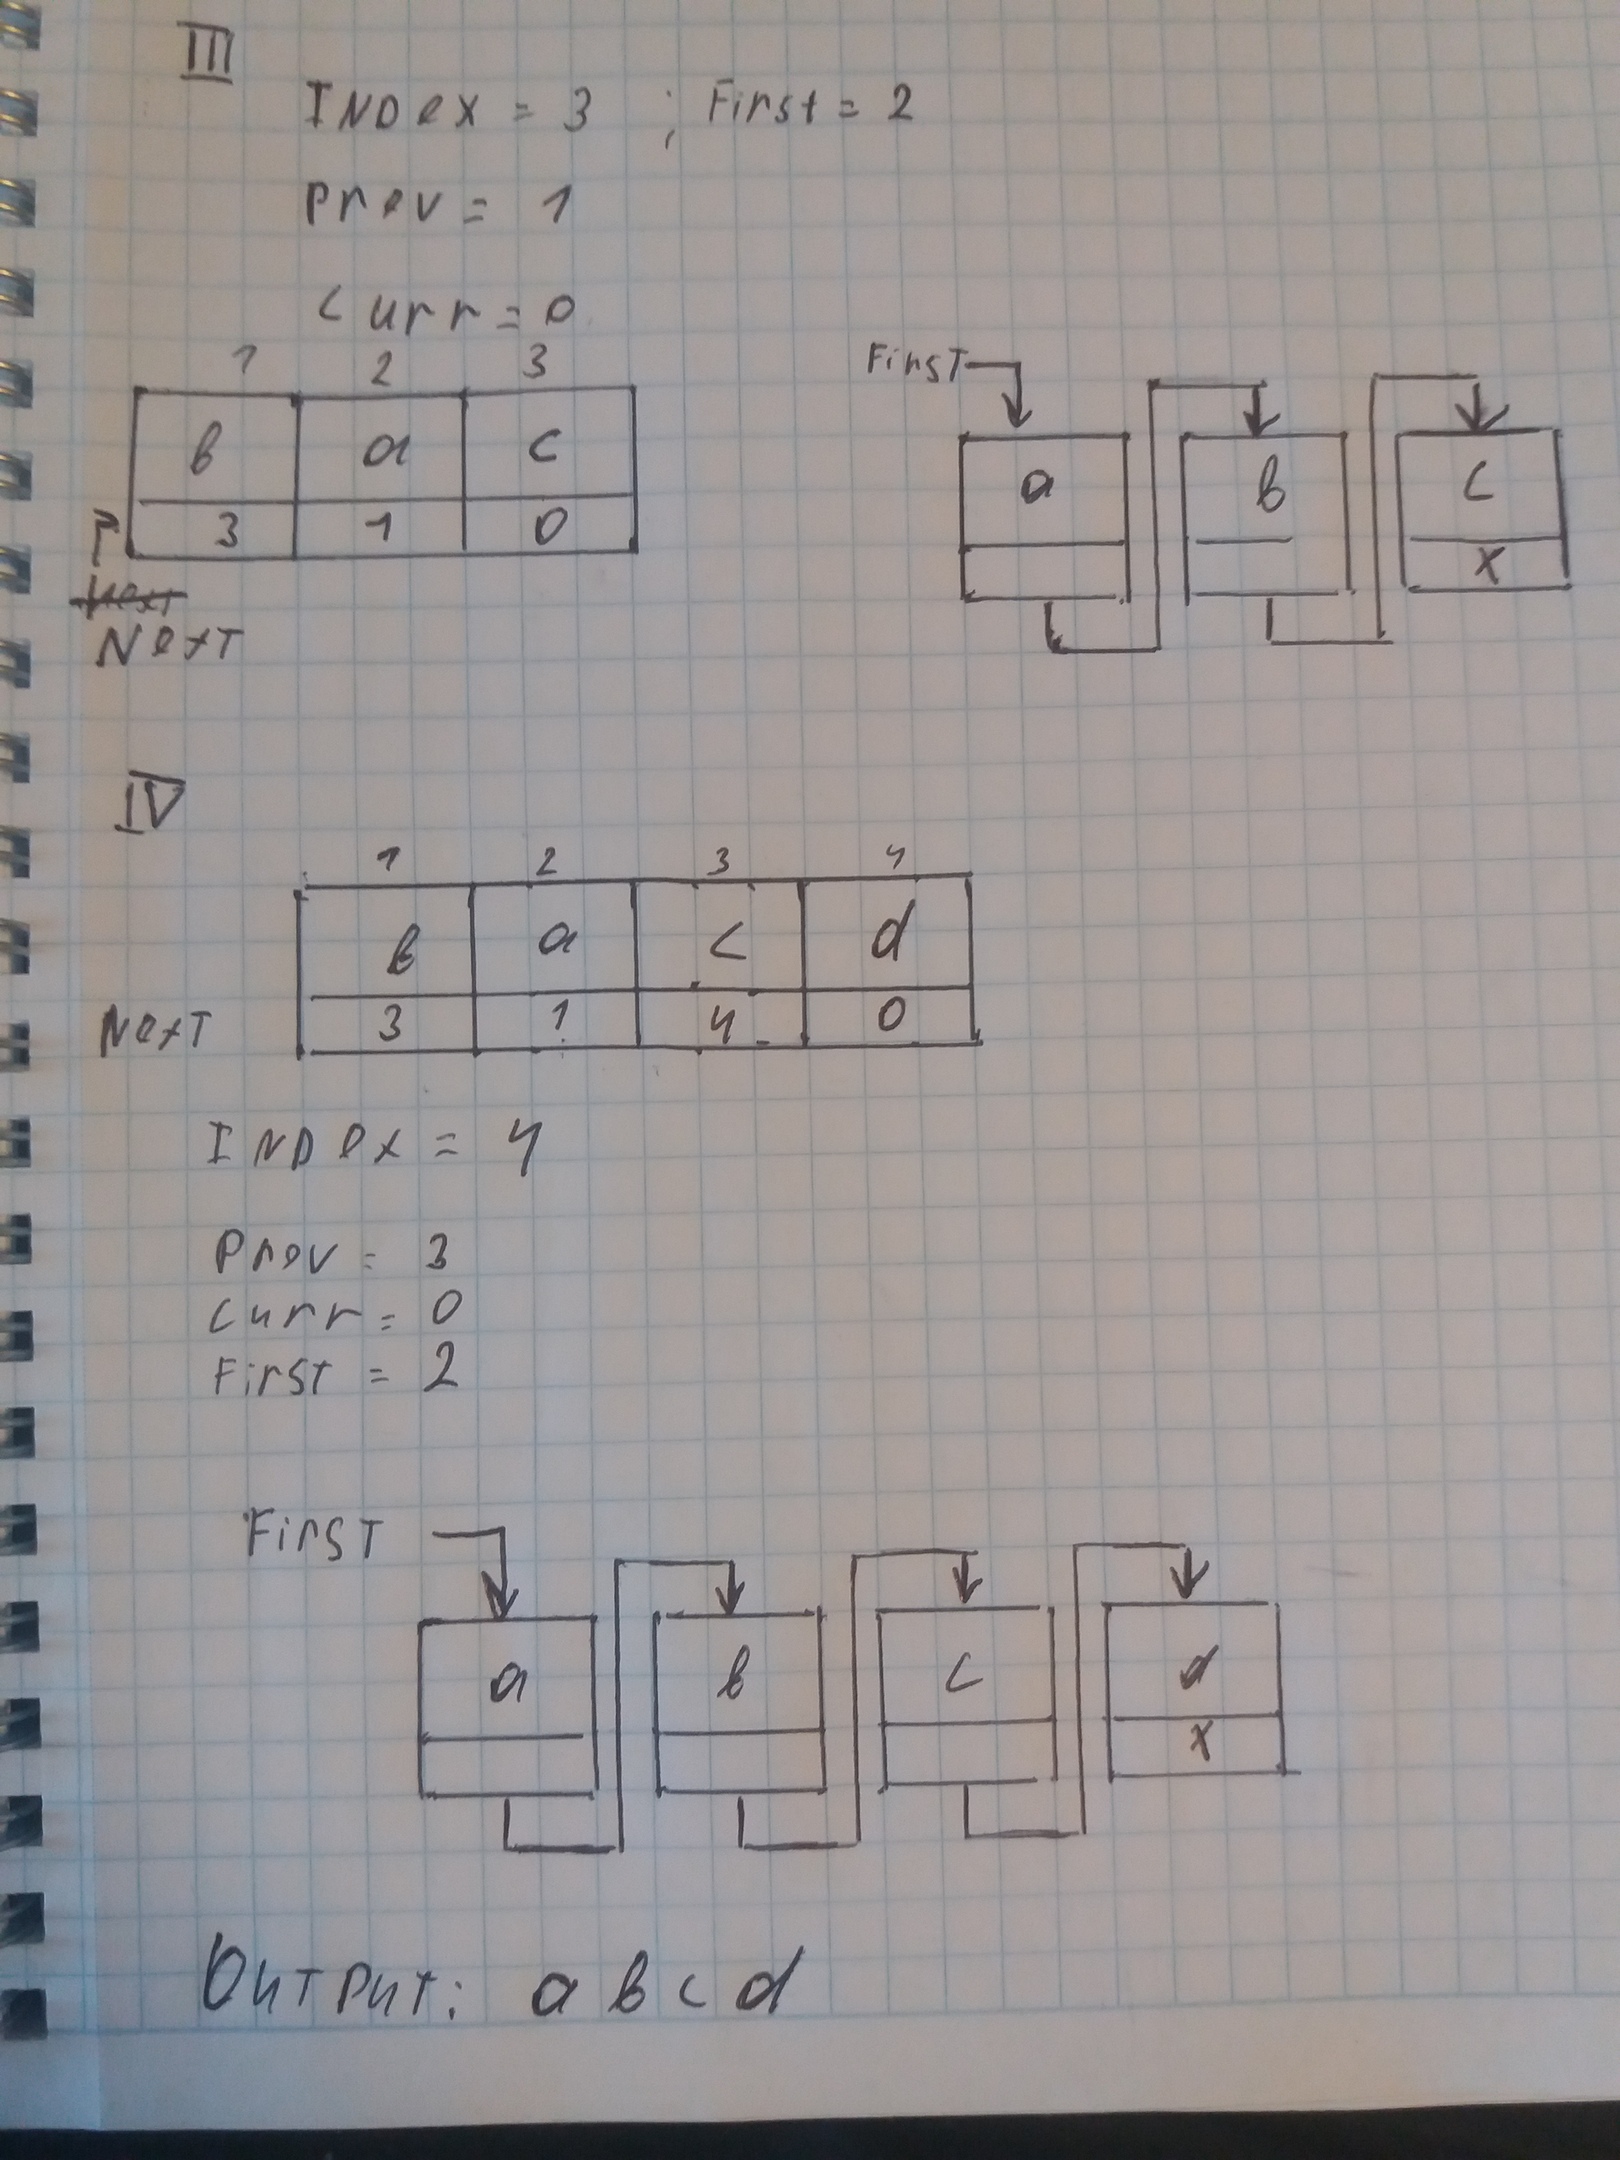 III
INDex = 3 ; First = 2
Prev = 1
Curr = 0
1 2 3
b a c
3 1 0
Next
NexT
FirsT
a b c
x
IV
1 2 3 4
b a c d
NexT 3 1 4 0
INDex = 4
Prev = 3
Curr = 0
First = 2
FirsT
a b c d
x
OutPut: a b c d